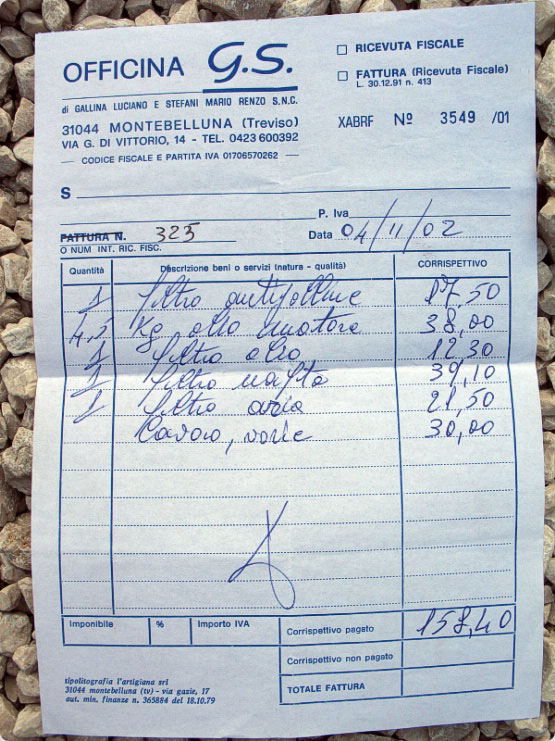 OFFICINA G.S.
di GALLINA LUCIANO E STEFANI MARIO RENZO S.N.C.
31044 MONTEBELLUNA (Treviso)
VIA G. DI VITTORIO, 14 - TEL. 0423 600392
— CODICE FISCALE E PARTITA IVA 01706570262 —
RICEVUTA FISCALE
FATTURA (Ricevuta Fiscale)
L. 30.12.91 n. 413
XABRF Nº 3549 /01
S
P. Iva
FATTURA N. 325
O NUM INT. RIC. FISC.
Data 04/11/02
Quantità Descrizione beni o servizi (natura - qualità) CORRISPETTIVO
1 filtro antipolline 17,50
4,5 Kg olio motore 38,00
1 filtro olio 12,30
1 filtro nafta 39,10
1 filtro aria 21,50
Lavoro, varie 30,00
Imponibile % Importo IVA Corrispettivo pagato 158,40
Corrispettivo non pagato
TOTALE FATTURA
tipolitografia l'artigiana srl
31044 montebelluna (tv) - via gazie, 17
aut. min. finanze n. 365884 del 18.10.79